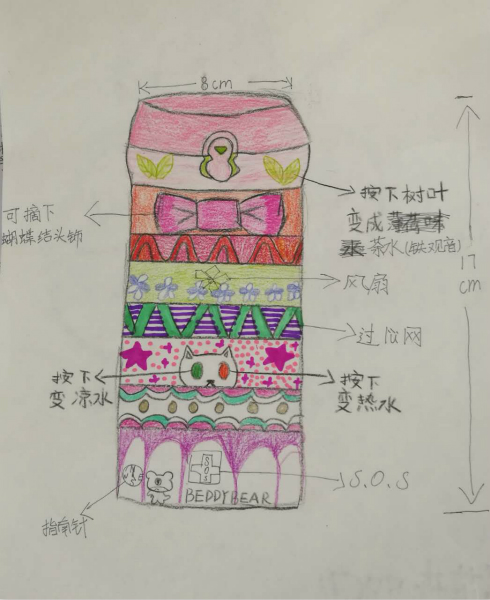 8cm
按下树叶
变成
茶水(铁观音)
可摘下
蝴蝶结头饰
17
cm
风扇
过滤网
按下
变凉水
按下
变热水
SOS
S.O.S
BEDDYBEAR
指南针